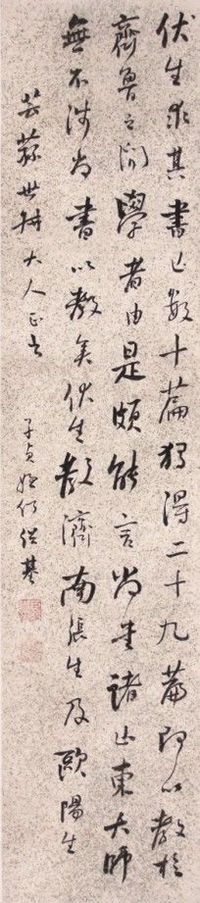 伏生求其書亡數十篇獨得二十九篇即以教於
齊魯之間學者由是頗能言尚書諸山東大師
無不涉尚書以教矣伏生教濟南張生及歐陽生
芸蓀世大人正之
子貞姪何紹基